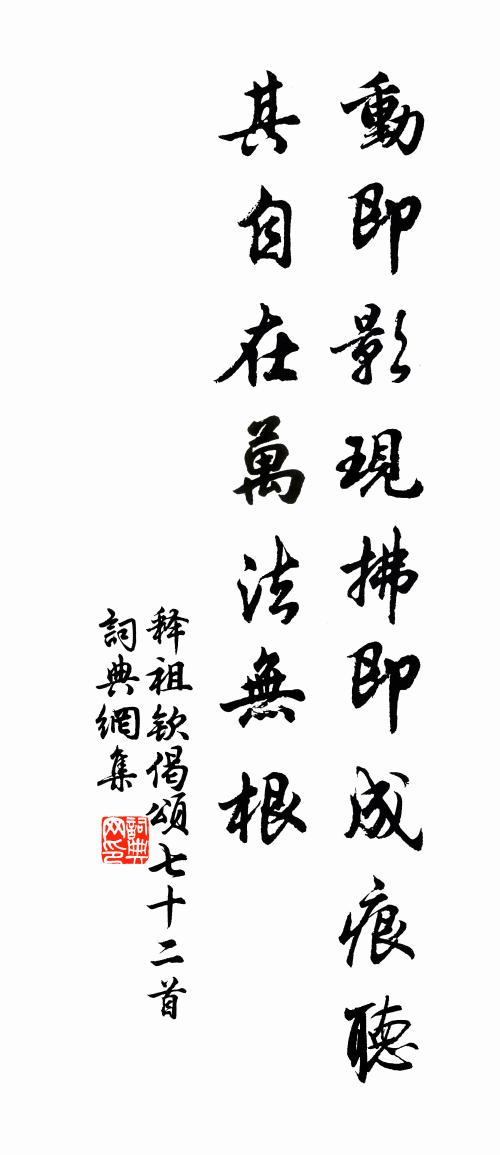 動即影現拂即成痕聽
其自在萬法無根
释祖钦偈頌七十二首
詞典網集
詞典網印